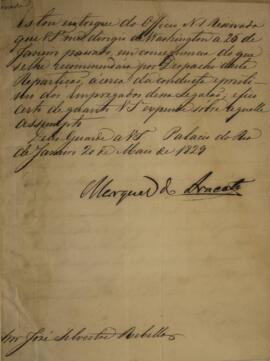 Estou entregue do Officio N.1 Reservada
que V.S. me dirigio de Washington a 25 de
Janeiro passado, em consequencia do que
se lhe recommendou por Despacho desta
Repartição, acerca da conducta e
dos empregados dessa Legação, e fico
certo de quanto V.S. expende sobre aquelle
assumpto
Deos Guarde a V.S. Palacio do Rio
de Janeiro 20 de Maio de 1829
Marquez de Aracaty
Snr José Silvestre Rebello